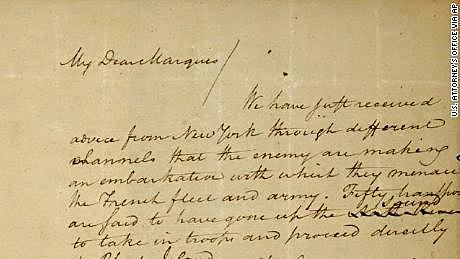 My Dear Marquis /
We have just received
advice from New York through different
channels that the enemy are making
an embarkation with which they menace
the French fleet and army. Fifty transpo
are said to have gone up the Sound
to take in troops and proceed directly
U.S. ATTORNEY'S OFFICE VIA AP